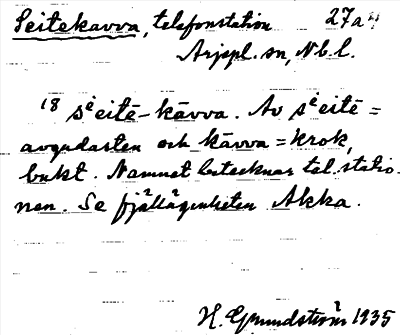 Seitekavva, telefonstation 27a4
Arjepl. sn, Nb. l.
18 sėitē-kāvva. Av sėitē =
avgudasten och kāvva = krok,
bukt. Namnet betecknar tel.statio-
nen. Se fjällägenheten Akka.
H. Grundström 1935